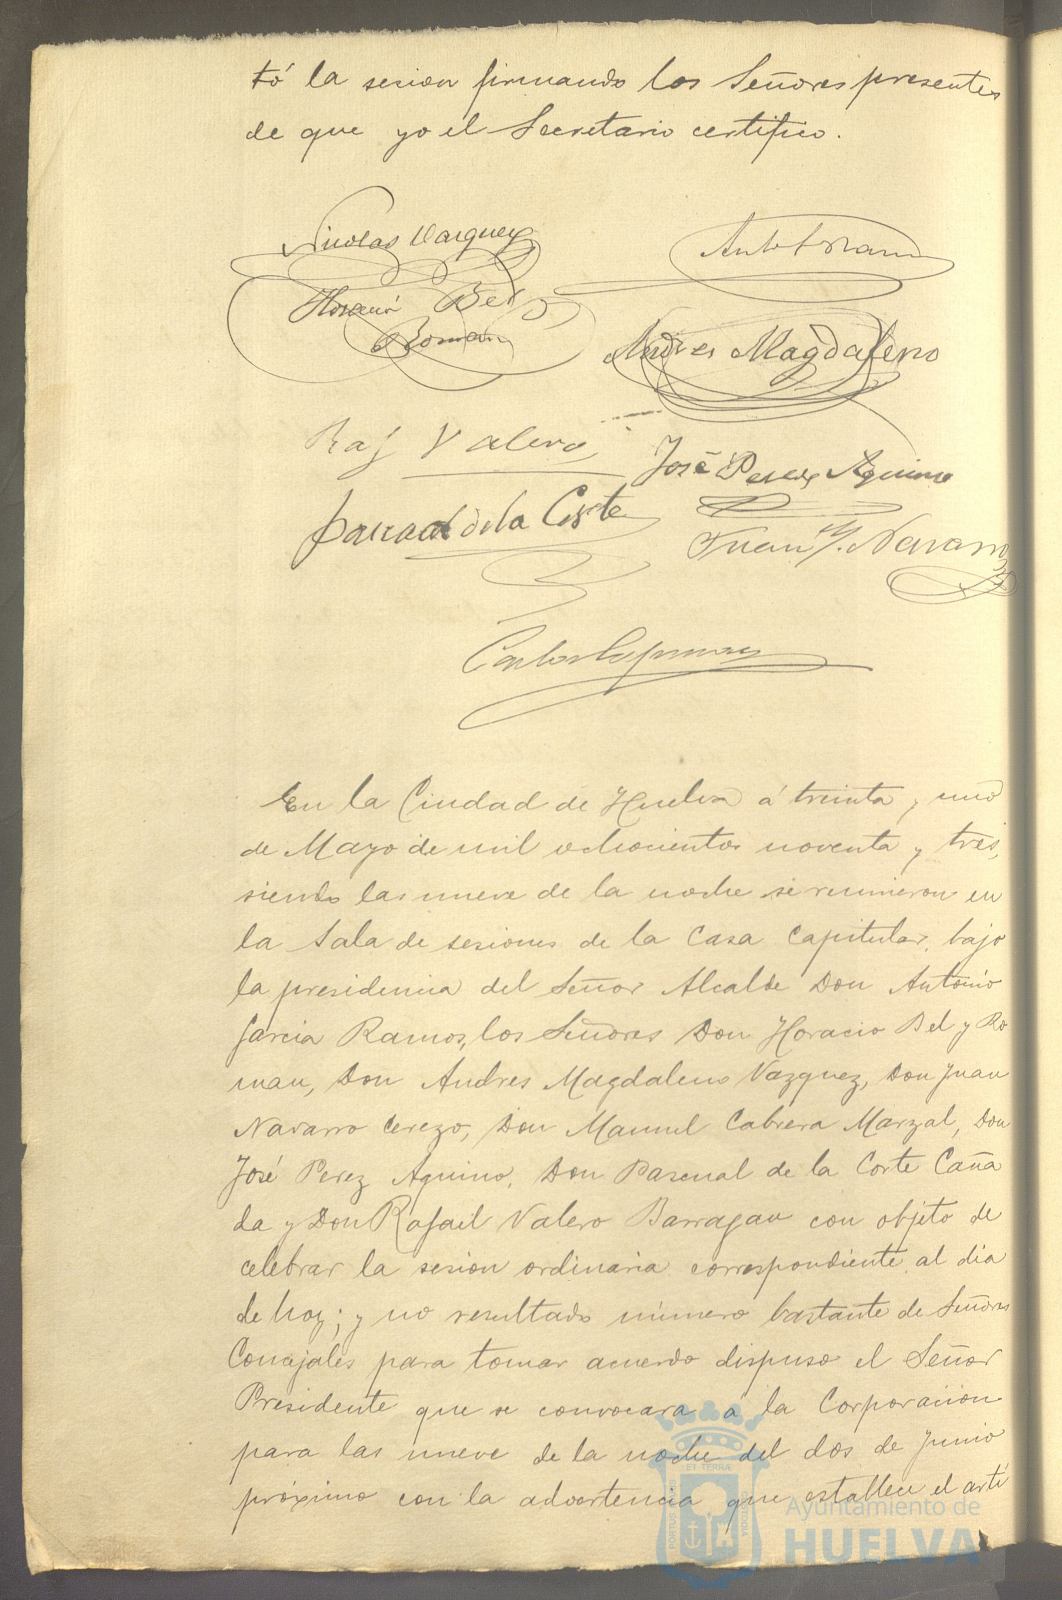 tó la sesion firmando los Señores presentes
de que yo el Secretario certifico.
Nicolas Vazquez
Ant.º G.ª Ramos
Horacio Bel
Roman
Andres Magdaleno
Raf Valero
José Perez Aquino
Pascual de la Corte
Juan Navarro
En la Ciudad de Huelva á treinta y uno
de Mayo de mil ochocientos noventa y tres,
siendo las nueve de la noche se reunieron en
la Sala de sesiones de la Casa Capitular, bajo
la presidencia del Señor Alcalde Don Antonio
Garcia Ramos, los Señores Don Horacio Bel y Ro
man, Don Andres Magdaleno Vazquez, Don Juan
Navarro Cerezo, Don Manuel Cabrera Marzal, Don
José Perez Aquino, Don Pascual de la Corte Caña
da y Don Rafael Valero Barragan con objeto de
celebrar la sesion ordinaria correspondiente al dia
de hoy; y no resultado número bastante de Señores
Concejales para tomar acuerdo dispuso el Señor
Presidente que se convocara á la Corporacion
para las nueve de la noche del dos de Junio
próximo con la advertencia que establece el arti
Ayuntamiento de
HUELVA